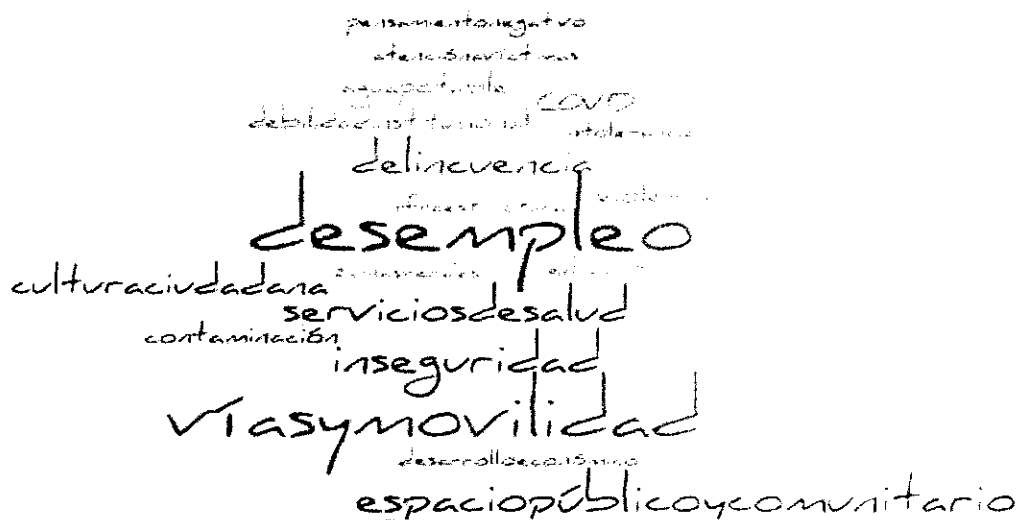 pensamientonegativo
atenciónavíctimas
aguapotable
COVID
debilidadinstitucional
intolerancia
delincuencia
desempleo
culturaciudadana
serviciosdesalud
contaminación
inseguridad
víasymovilidad
desarrolloeconómico
espaciopúblicoycomunitario